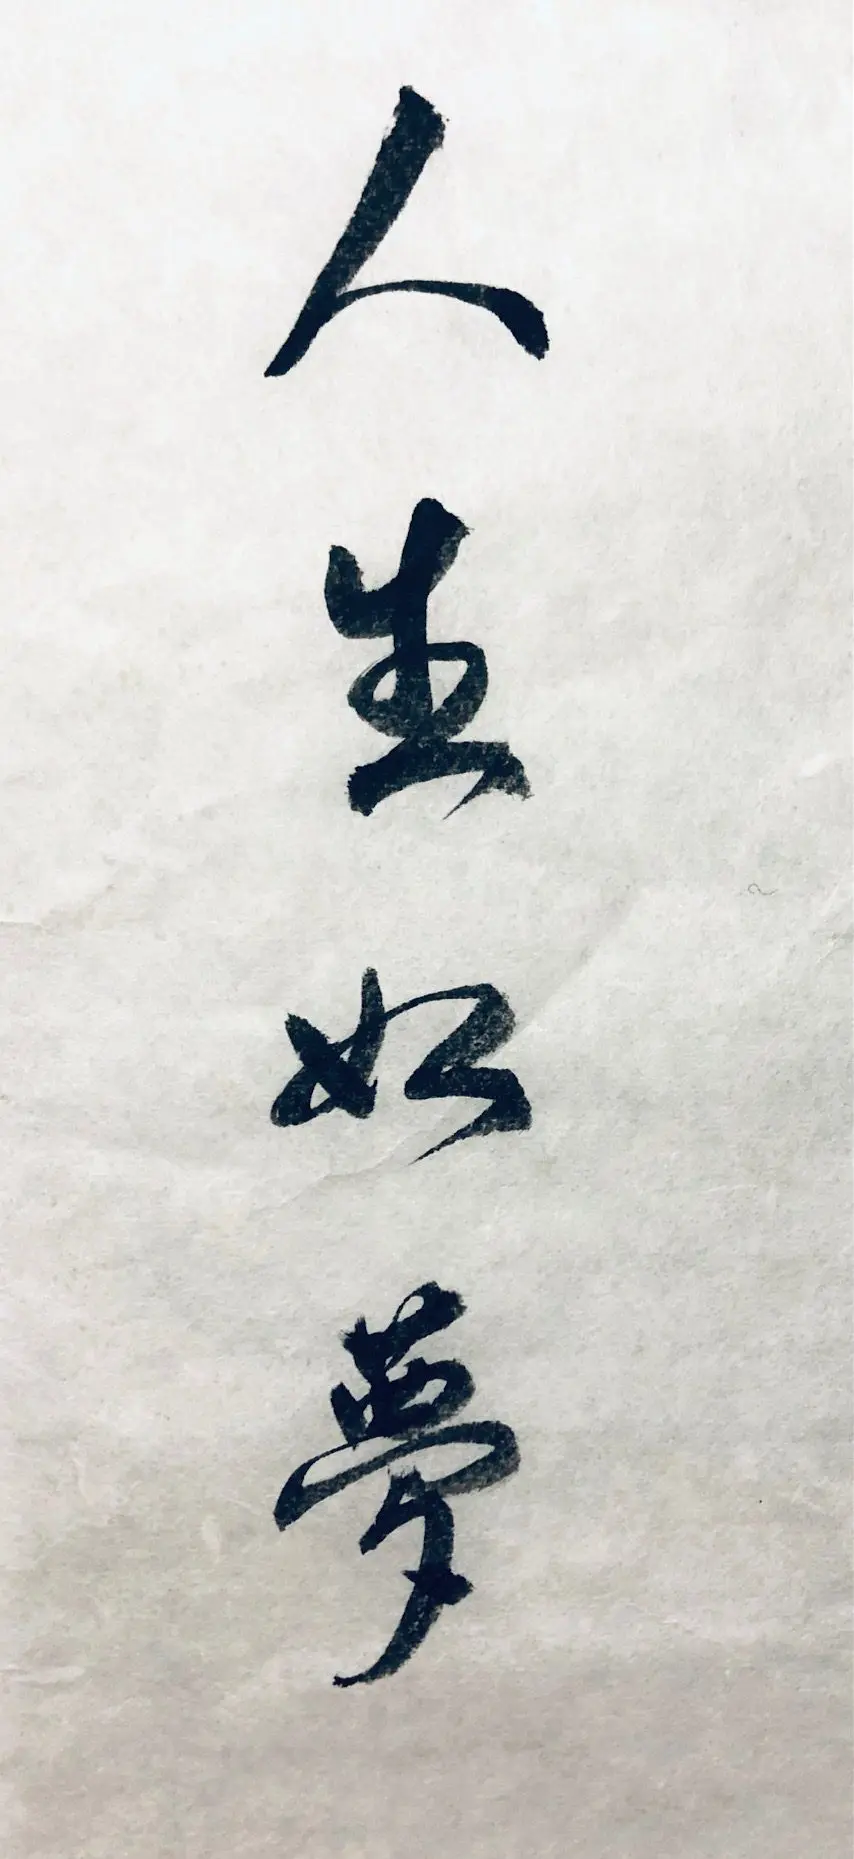 人生如夢